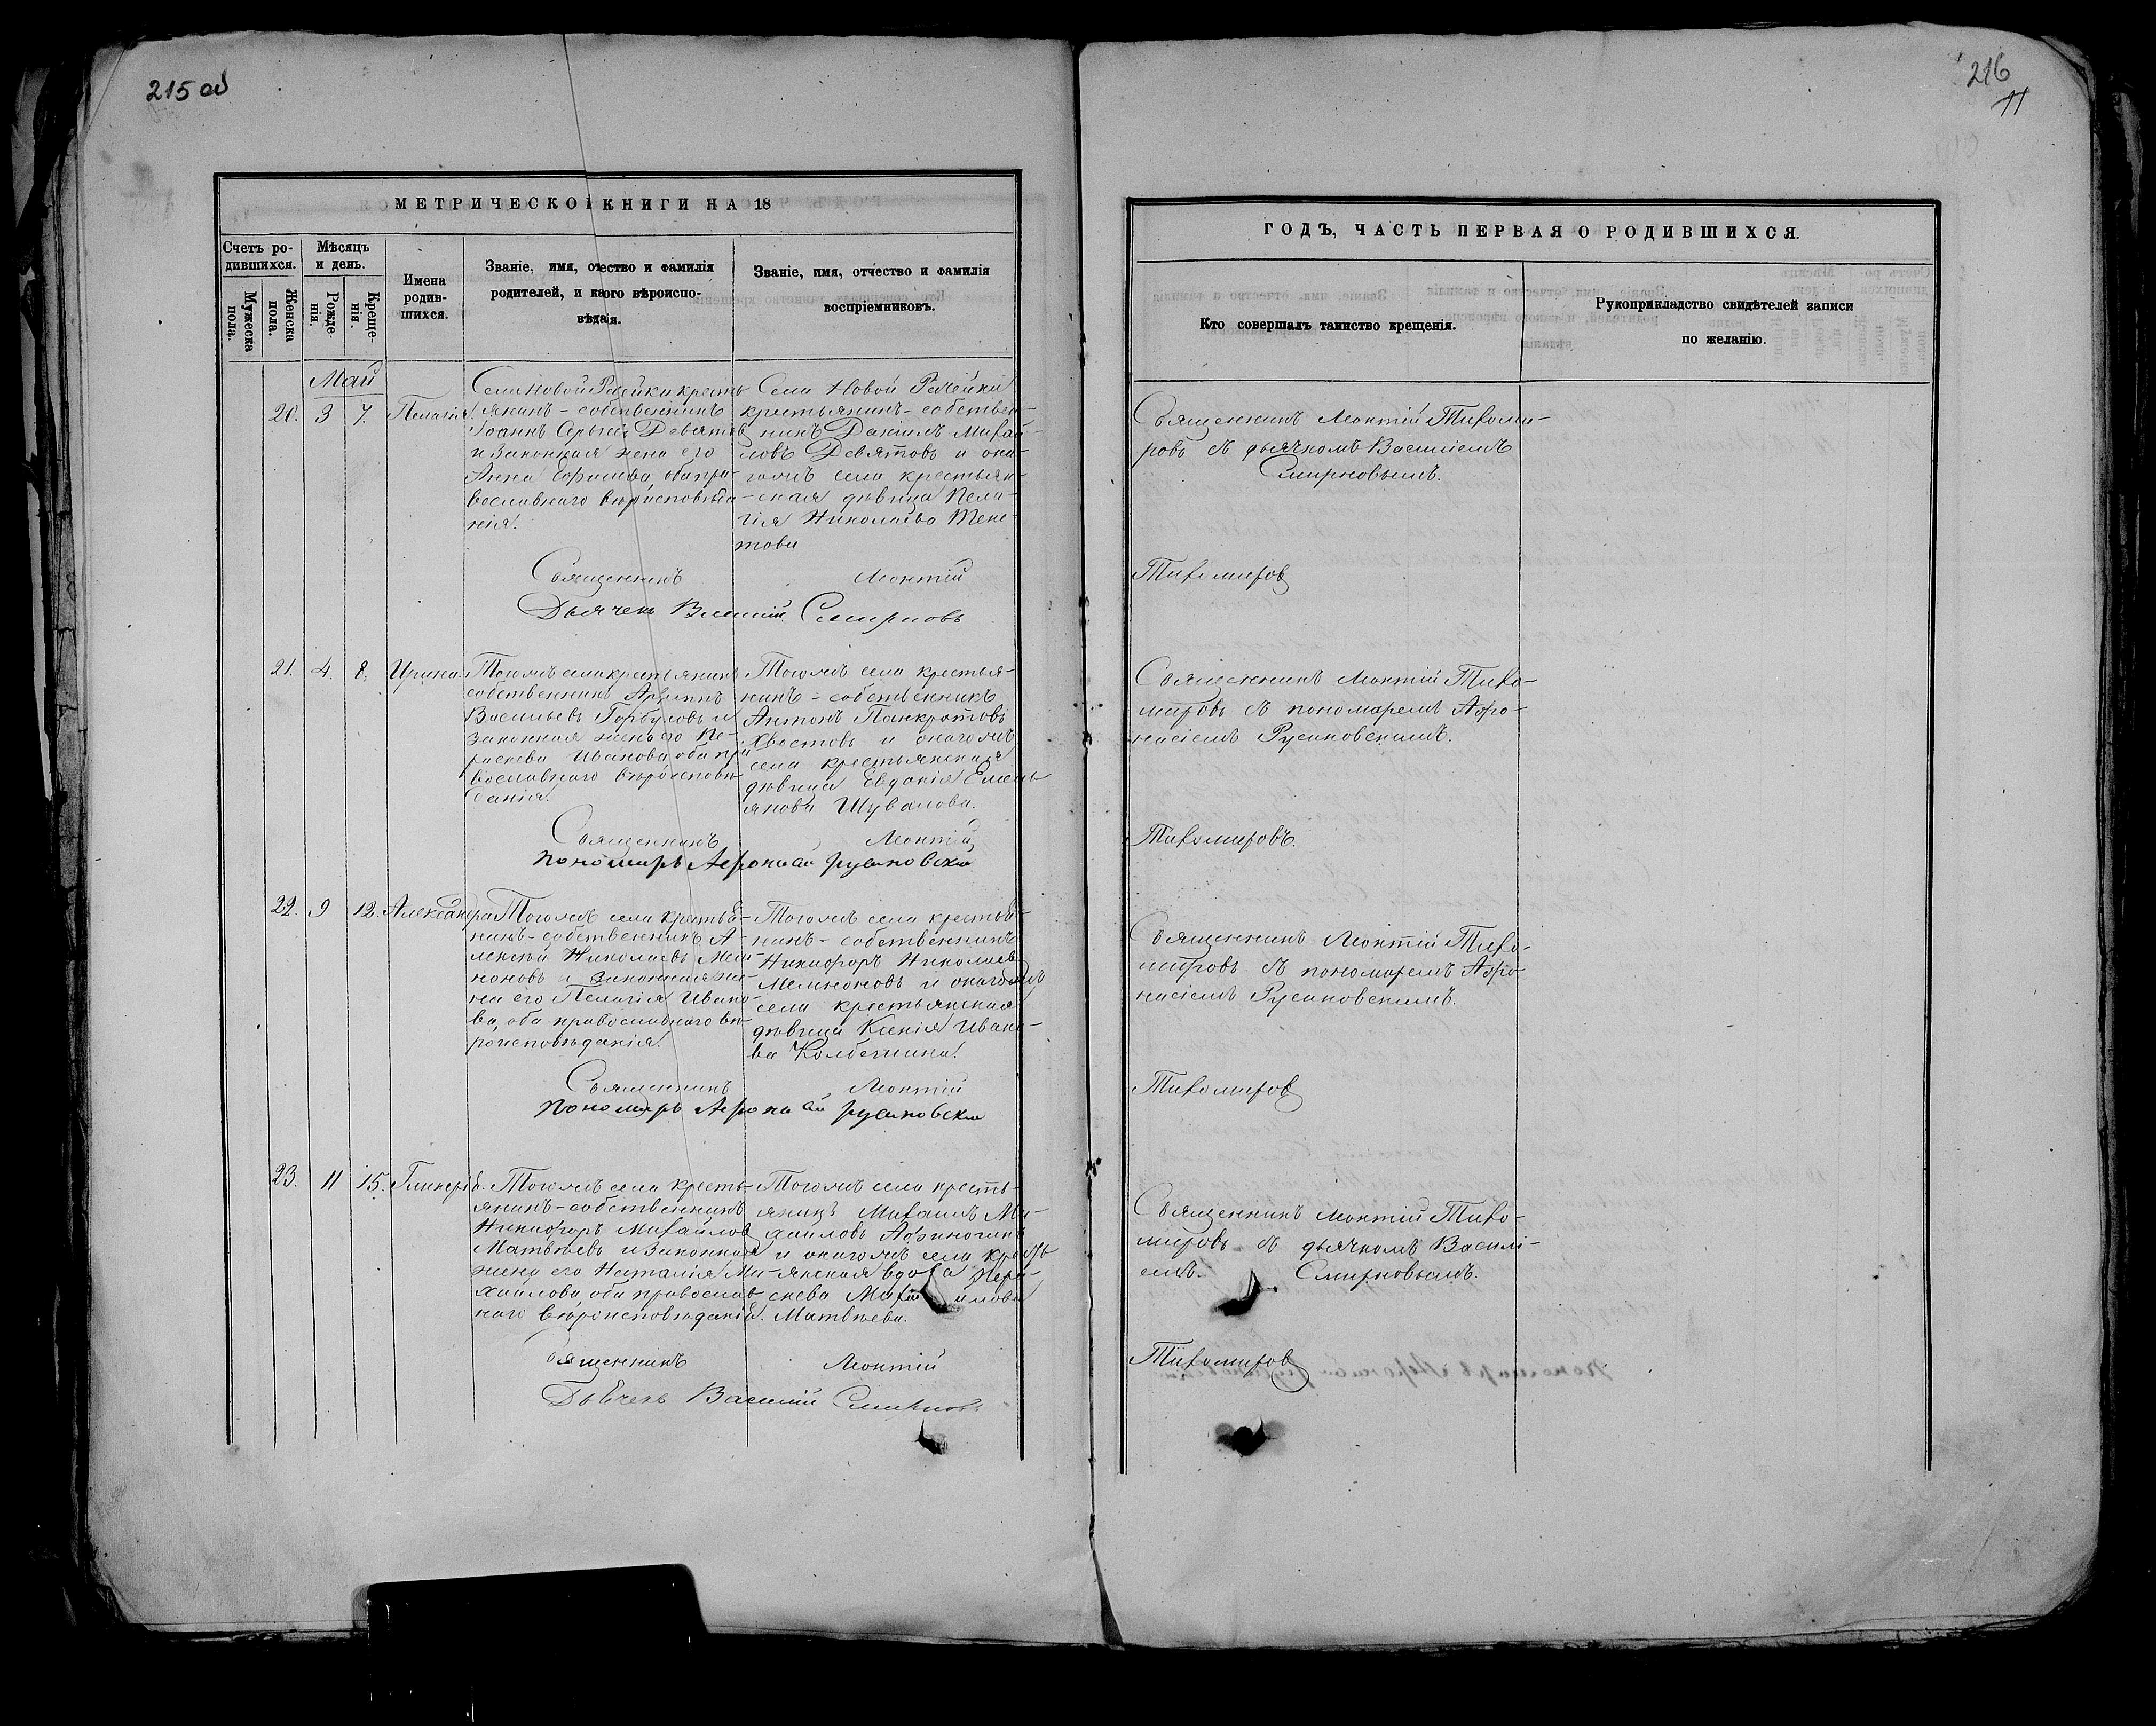 215 об
216
11
МЕТРИЧЕСКОЙ КНИГИ НА 18
ГОДЪ, ЧАСТЬ ПЕРВАЯ О РОДИВШИХСЯ.
Счетъ ро-
дившихся.
Мужеска
пола.
Женска
пола.
Мѣсяцъ
и день.
Рожде-
нія.
Креще-
нія.
Имена
родив-
шихся.
Званіе, имя, отчество и фамилія
родителей, и какого вѣроиспо-
вѣданія.
Званіе, имя, отчество и фамилія
воспріемниковъ.
Кто совершалъ таинство крещенія.
Рукоприкладство свидѣтелей записи
по желанію.
Май
20. 3 7. Пелагія
Села Новой Рачейки кресть
янинъ-собственникъ
Іоаннъ Сергѣевъ Девятовъ
и законная жена его
Анна Ефимова, оба пра-
вославнаго вѣроисповѣда
нія.
Села Новой Рачейки
крестьянинъ-собствен-
никъ Даніилъ Михай-
ловъ Девятовъ и она-
гожъ села крестьян-
ская дѣвица Пела-
гія Николаева
Священникъ Леонтій Тихоми-
ровъ съ дьячкомъ Василіемъ
Смирновымъ.
Священникъ Леонтій Тихомировъ
Дьячекъ Василій Смирновъ
21. 4. 8. Ирина.
Тогожъ села крестьянинъ
собственникъ Архиппъ
Васильевъ Горбуновъ и
законная жена его Па-
раскева Иванова оба пра
вославнаго вѣроисповѣ
данія.
Тогожъ села крестья-
нинъ-собственникъ
Антонъ Панкратовъ
Хвостовъ и онагожъ
села крестьянская
дѣвица Евдокія Емель
янова Шувалова.
Священникъ Леонтій Тихо-
мировъ съ пономаремъ Афа-
насіемъ Русановскимъ.
Священникъ Леонтій Тихомировъ.
Пономарь Афонасй русановски
22. 9 12. Александра
Тогожъ села крестья-
нинъ-собственникъ А-
лексѣй Николаевъ Мам-
коновъ и законная же-
на его Пелагія Ивано-
ва, оба православнаго вѣ-
роисповѣданія.
Тогожъ села крестья-
нинъ-собственникъ
Никифоръ Николаевъ
и онагожъ
села крестьянская
дѣвица Ксенія Ивано-
ва
Священникъ Леонтій Тихо-
мировъ съ пономаремъ Афа-
насіемъ Русановскимъ.
Священникъ Леонтій Тихомировъ
Пономарь Афонасй русановски
23. 11 15. Гликерія.
Тогожъ села кресть-
янинъ-собственникъ
Никифоръ Михайловъ
Матвѣевъ и законная
жена его Наталія Ми-
хайлова, оба православ
наго вѣроисповѣданія.
Тогожъ села кресть-
янинъ Михаилъ Ми-
хаиловъ Афиногинъ
и онагожъ села кресть
янская вдова Пара-
скева Михайлова
Матвѣева.
Священникъ Леонтій Тихо-
мировъ съ дьячкомъ Василі-
емъ Смирновымъ.
Священникъ Леонтій Тихомировъ
Дьячекъ Василій Смирновъ